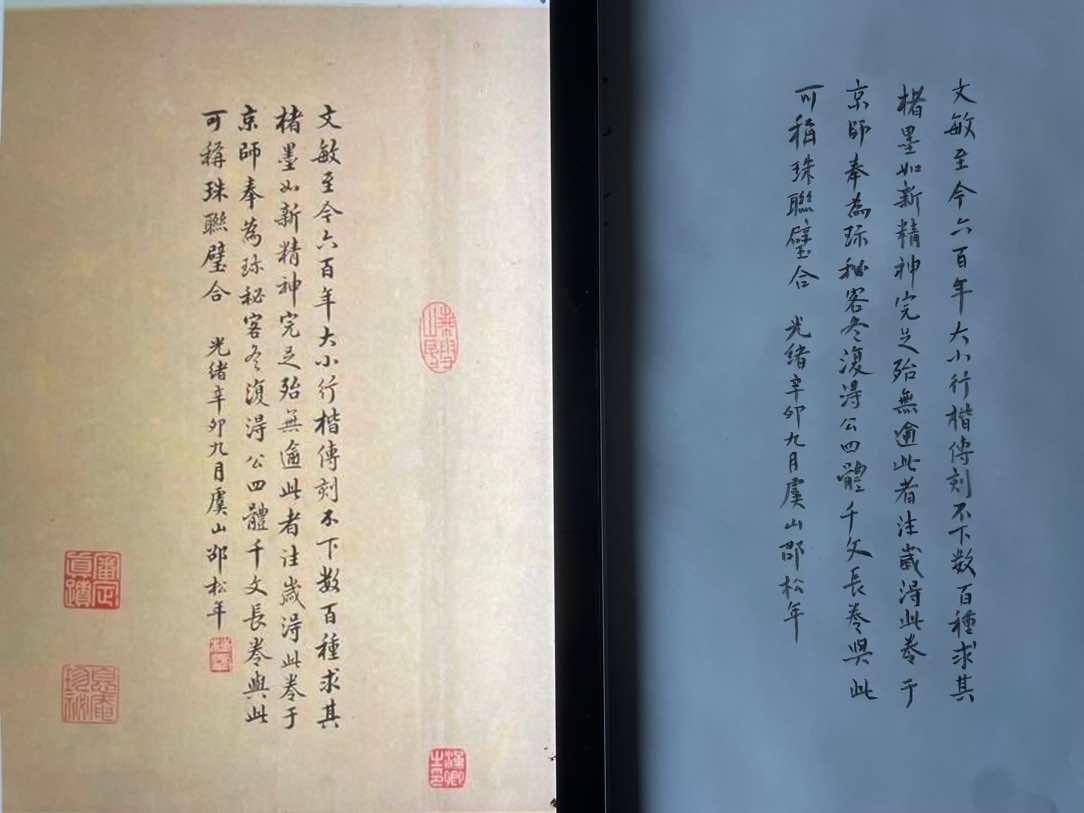 文敏至今六百年大小行楷傳刻不下数百種求其
楮墨如新精神完足殆無逾此者往歲得此卷于
京師奉為珎秘客冬復得公四體千文長卷與此
可稱珠聯璧合 光緒辛卯九月虞山邵松年
審定真蹟
息盦珍秘
文敏至今六百年大小行楷傳刻不下数百種求其
楮墨如新精神完足殆無逾此者往歲得此卷于
京師奉為珎秘客冬復得公四體千文長卷與此
可稱珠聯璧合 光緒辛卯九月虞山邵松年